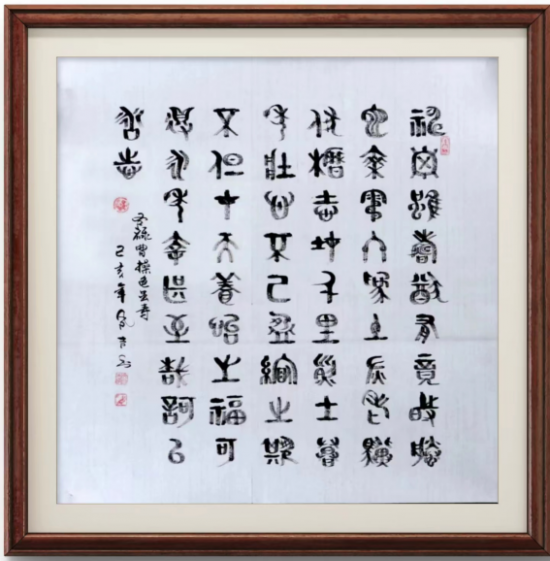 神龜雖壽猶有竟時騰
蛇乘霧終為土灰老驥
伏櫪志在千里烈士暮
年壯心不已盈縮之期
不但在天養怡之福可
得永年幸甚至哉歌以
詠志
錄曹操龟虽寿
己亥年